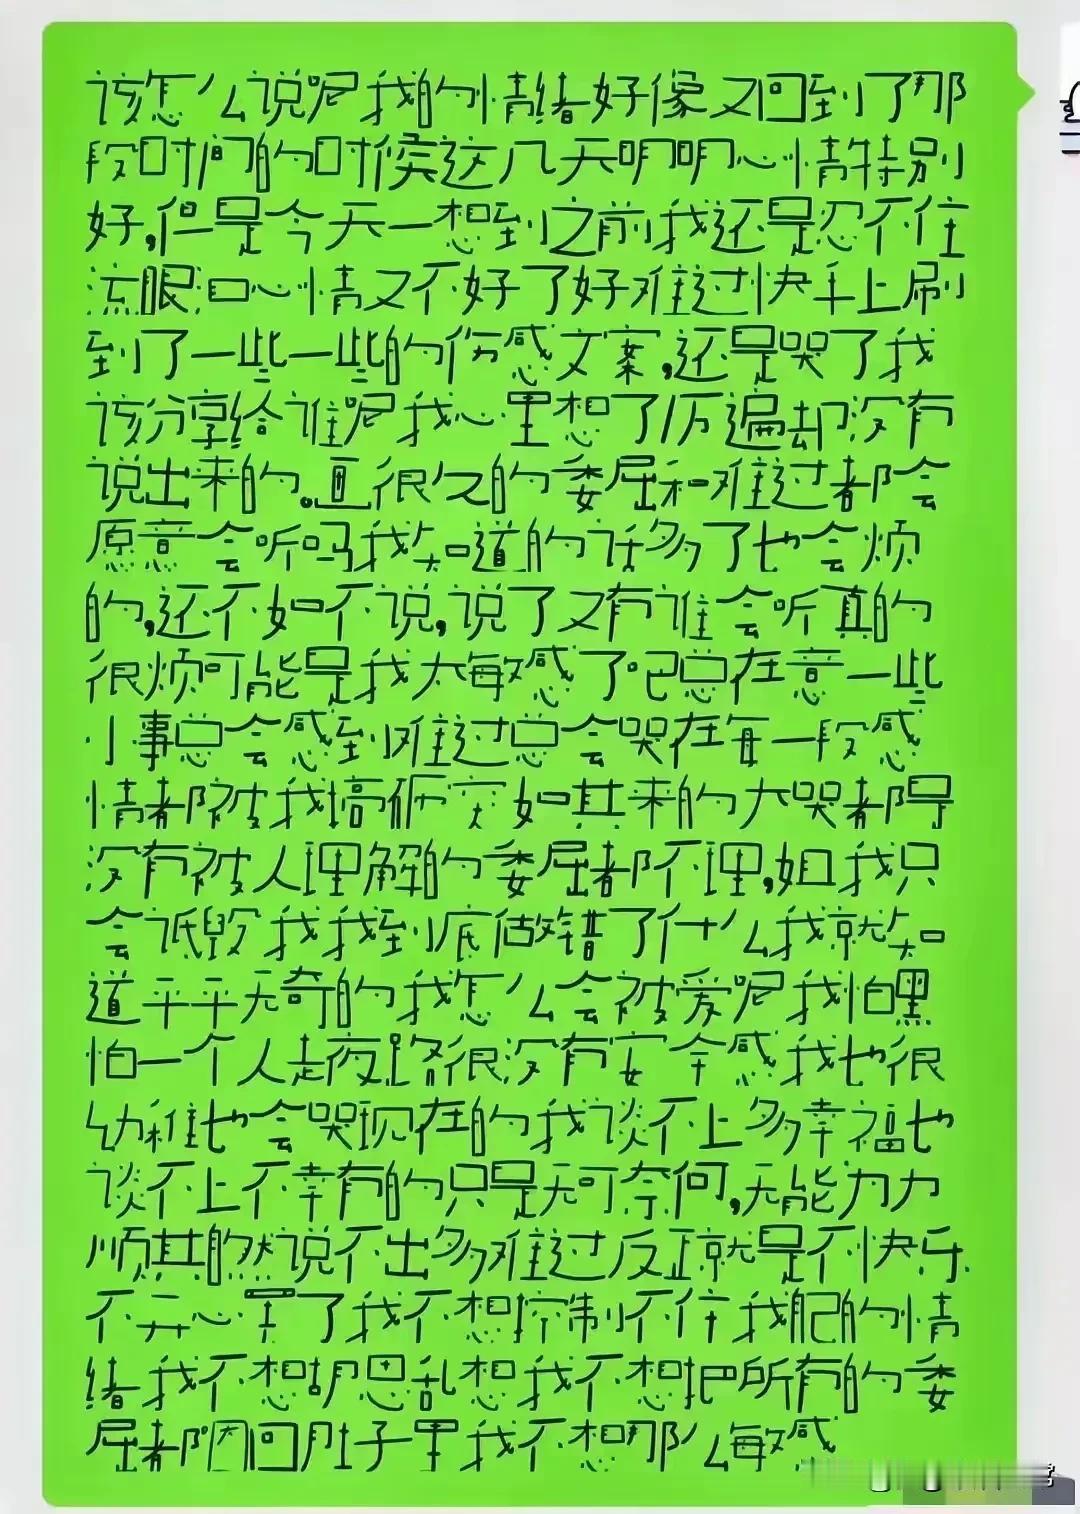 该怎么说呢我的情绪好像又回到了那
段时间的时候这几天明明心情特别
好,但是今天一想到之前我还是忍不住
流眼泪心情又不好了好难过快手上刷
到了一些一些的伤感文案,还是哭了我
该分享给谁呢我心里想了万遍却没有
说出来的。画很久的委屈和难过都会
愿意会听吗我知道的话多了也会烦
的,还不如不说,说了又有谁会听真的
很烦可能是我太敏感了吧总在意一些
小事总会感到难过总会哭在每一段感
情都被我搞砸突如其来的大哭都是
没有被人理解的委屈都不理,姐我只
会诋毁我我到底做错了什么我就知
道平平无奇的我怎么会被爱呢我怕黑
怕一个人走夜路很没有安全感我也很
幼稚也会哭现在的我谈不上多幸福也
谈不上不幸有的只是无可奈何,无能为力
顺其自然说不出多难过反正就是不快乐
不开心罢了我不想控制不住我的情
绪我不想胡思乱想我不想把所有的委
屈都咽回肚子里我不想那么敏感